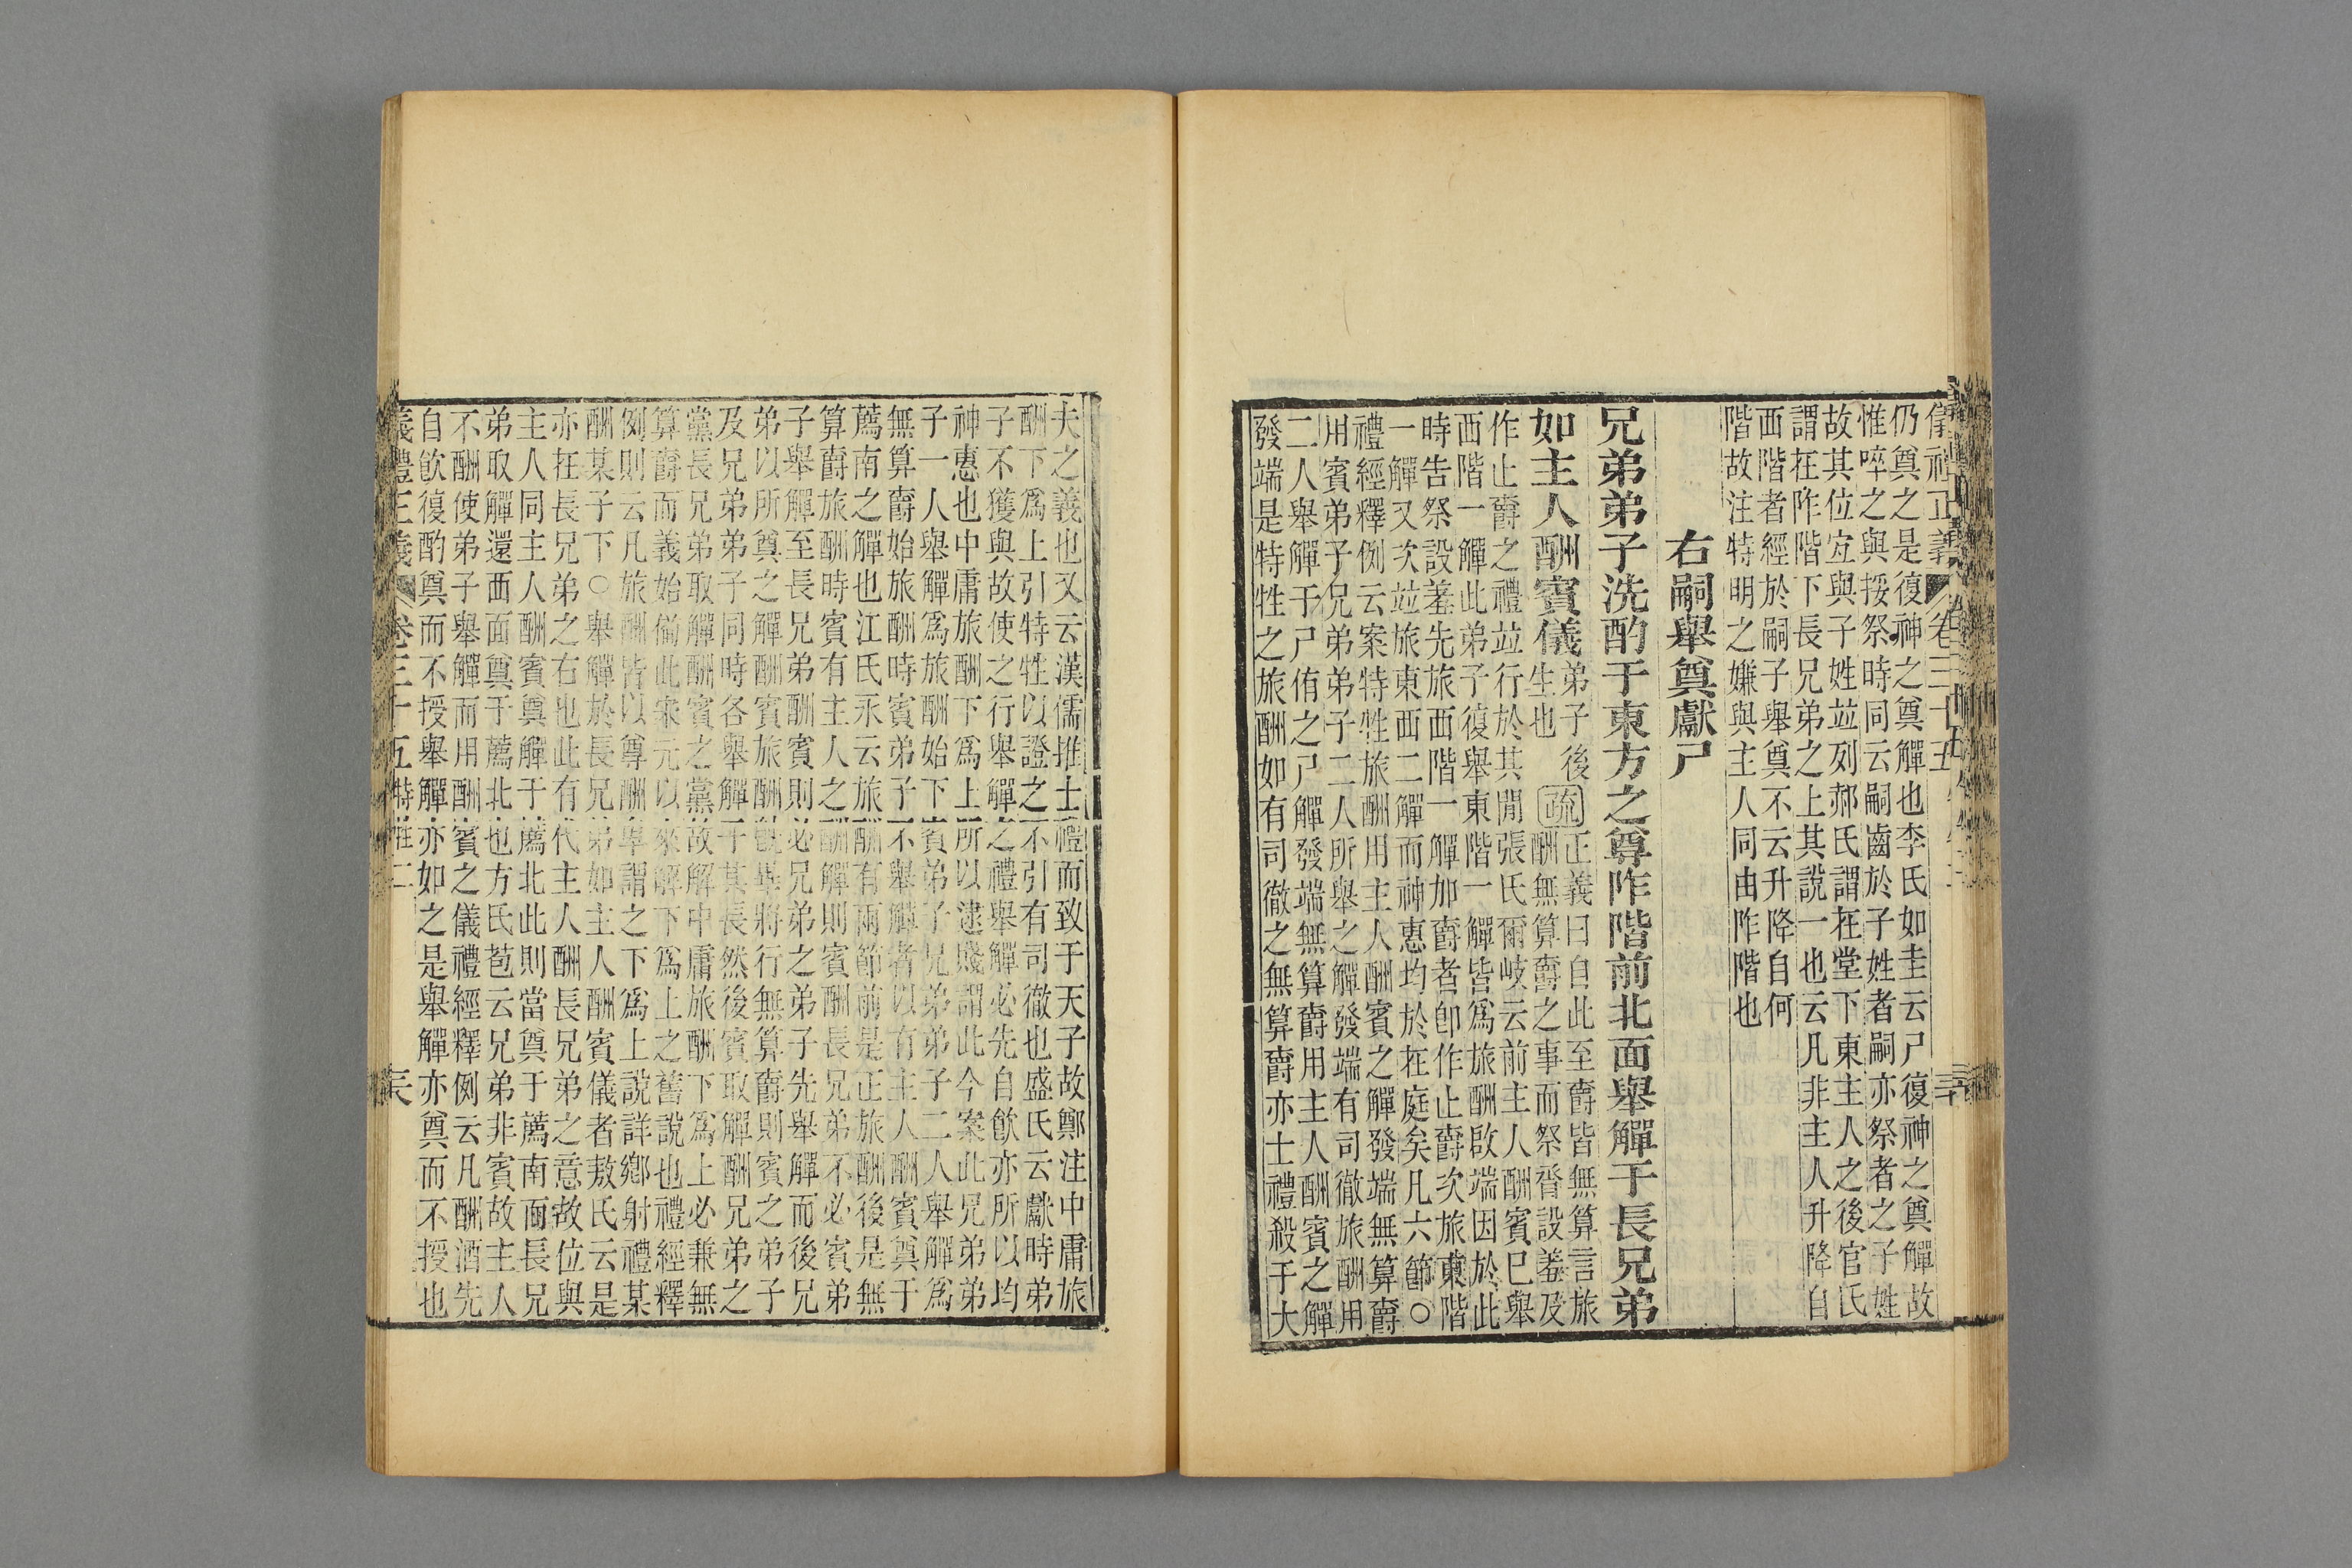 儀禮正義 卷三十五
仍奠之是復神之奠觶也李氏如圭云尸復神之奠觶故
惟啐之與挼祭時同云嗣齒於子姓者嗣亦祭者之子姓
故其位宐與子姓竝列郝氏謂在堂下東主人之後官氏
謂在阼階下長兄弟之上其說一也云凡非主人升降自
西階者經於嗣子舉奠不云升降自何
階故注特明之嫌與主人同由阼階也
右嗣舉奠獻尸
兄弟弟子洗酌于東方之尊阼階前北面舉觶于長兄弟
如主人酬賓儀
弟子後
生也
疏
正義曰自此至爵皆無算言旅
酬無算爵之事而祭脀設羞及
作止爵之禮竝行於其閒張氏爾岐云前主人酬賓已舉
西階一觶此弟子復舉東階一觶皆爲旅酬啟端因於此
時告祭設羞先旅西階一觶加爵者卽作止爵次旅東階
一觶又次竝旅東西二觶而神惠均於在庭矣凡六節○
禮經釋例云案特牲旅酬用主人酬賓之觶發端無算爵
用賓弟子兄弟弟子二人所舉之觶發端有司徹旅酬用
二人舉觶于尸侑之尸觶發端無算爵用主人酬賓之觶
發端是特牲之旅酬如有司徹之無算爵亦士禮殺于大
夫之義也又云漢儒推士禮而致于天子故鄭注中庸旅
酬下爲上引特牲以證之不引有司徹也盛氏云獻時弟
子不獲與故使之行舉觶之禮舉觶必先自飲亦所以均
神惠也中庸旅酬下爲上所以逮賤謂此今案此兄弟弟
子一人舉觶爲旅酬始下賓弟子兄弟弟子二人舉觶爲
無算爵始旅酬時賓弟子不舉觶者以有主人酬賓奠于
薦南之觶也江氏永云旅酬有兩節前是正旅酬後是無
算爵旅酬時賓有主人之酬觶則賓酬長兄弟不必賓弟
子舉觶至長兄弟酬賓則必兄弟之弟子先舉觶而後兄
弟以所奠之觶酬賓旅酬旣畢將行無算爵則賓之弟子
及兄弟弟子同時各舉觶于其長然後賓取觶酬兄弟之
黨長兄弟取觶酬賓之黨故解中庸旅酬下爲上必兼無
算爵而義始備此朱元以來解下爲上之舊說也禮經釋
例則云凡旅酬皆以尊酬卑謂之下爲上說詳鄉射禮某
酬某子下○舉觶於長兄弟如主人酬賓儀者敖氏云是
亦在長兄弟之右也此有代主人酬長兄弟之意故位與
主人同主人酬賓奠觶于薦北此則當奠于薦南而長兄
弟取觶還西面奠于薦北也方氏苞云兄弟非賓故主人
不酬使弟子舉觶而用酬賓之儀禮經釋例云凡酬酒先
自飲復酌奠而不授舉觶亦如之是舉觶亦奠而不授也
義禮正義 卷三十五特牲二